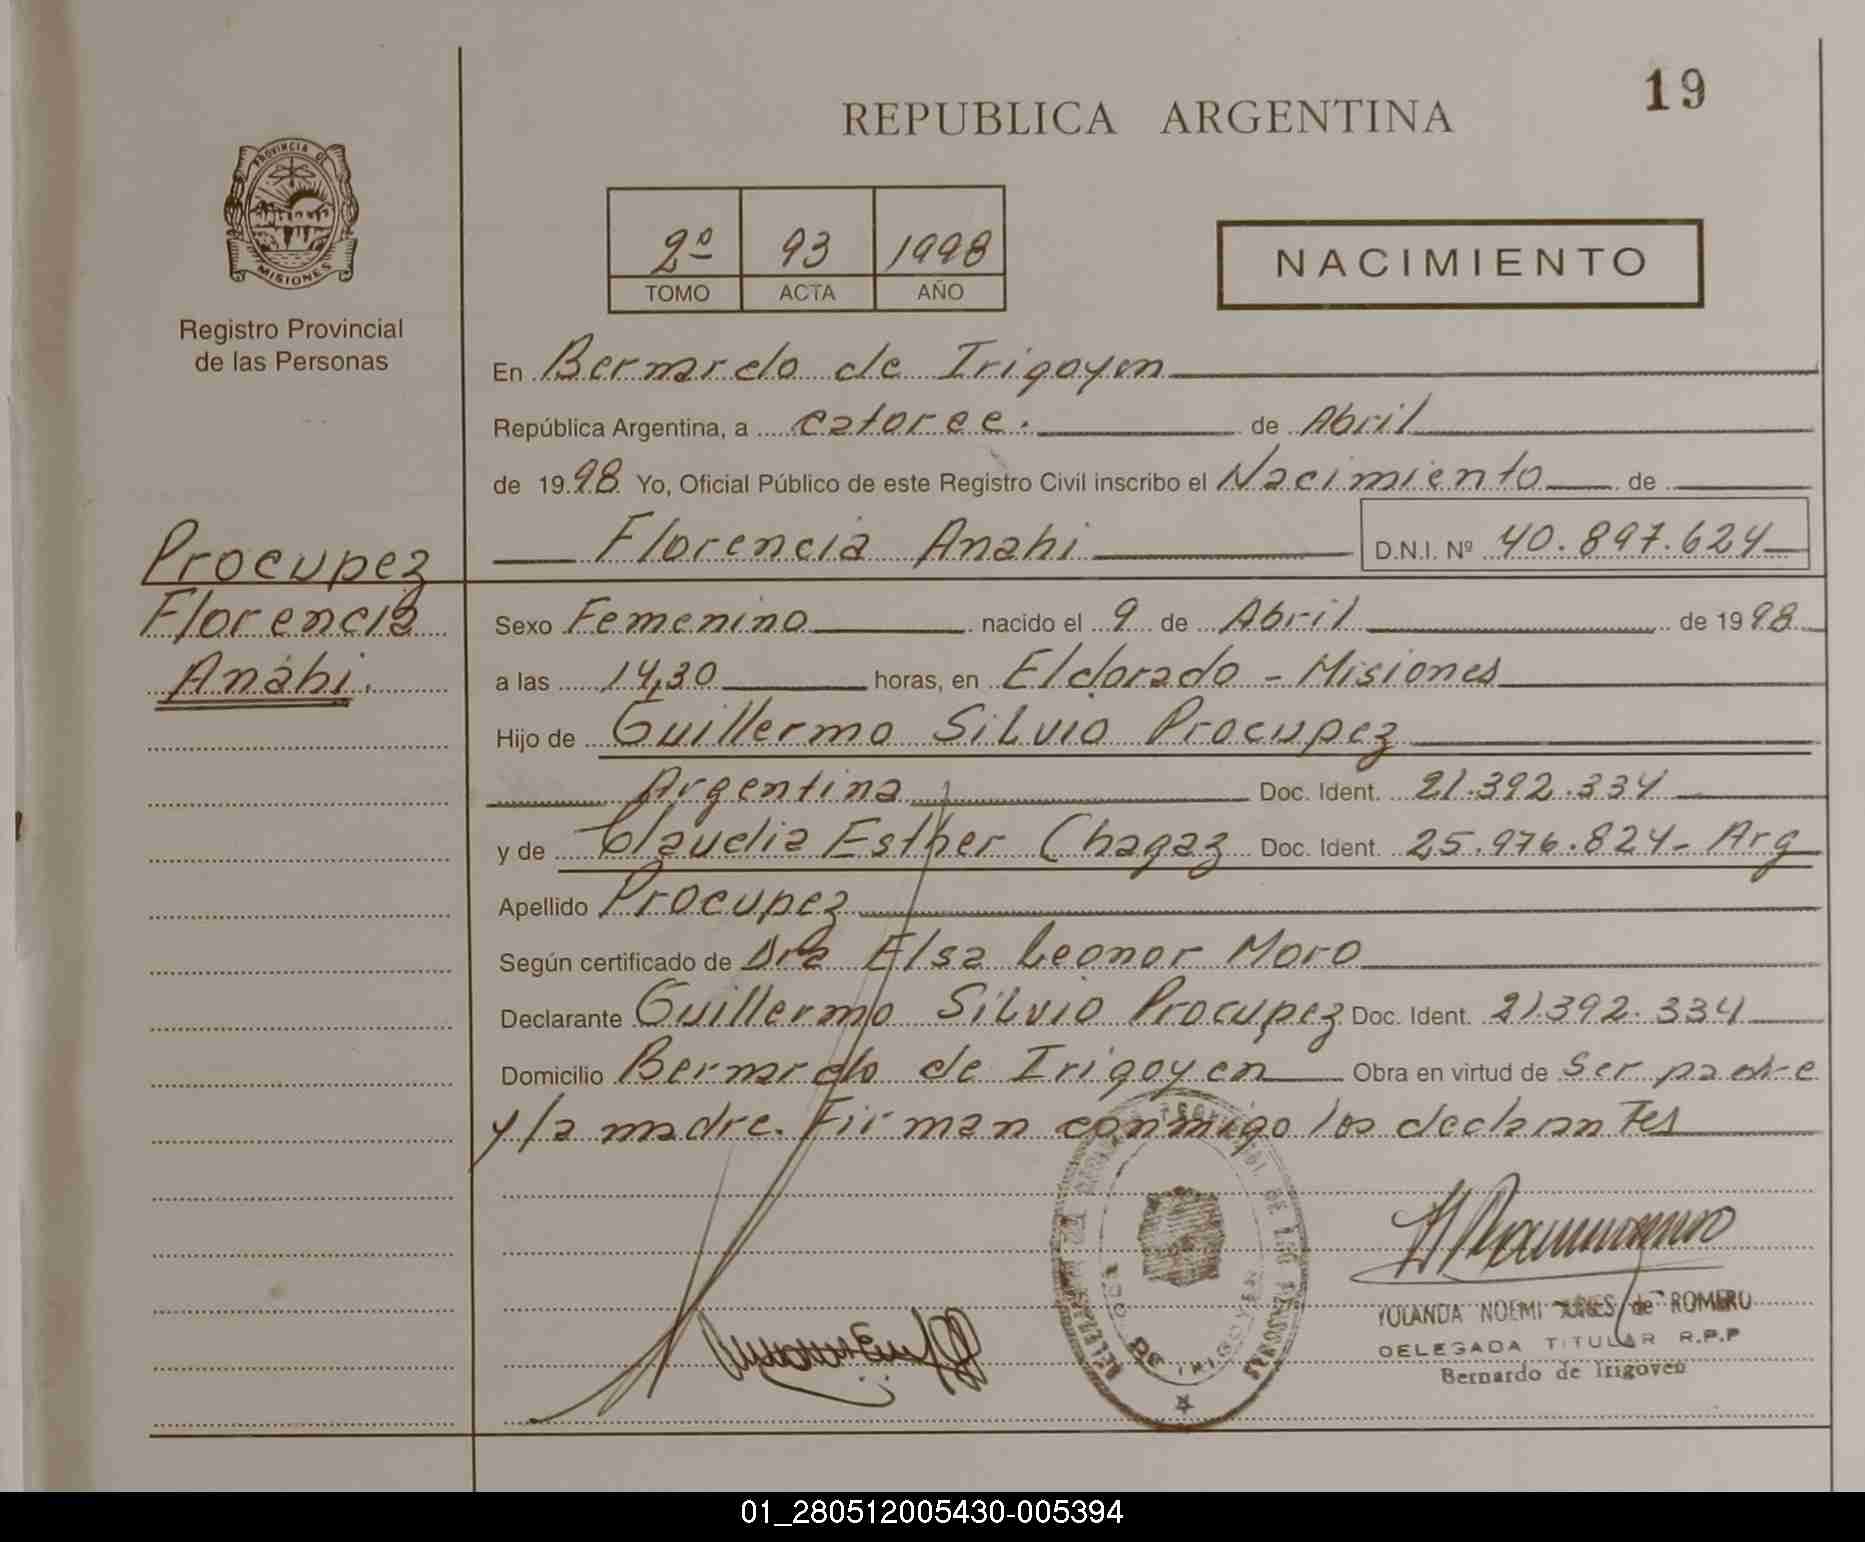 19
REPUBLICA ARGENTINA
PROVINCIA DE
MISIONES
Registro Provincial
de las Personas
2º 93 1998
TOMO ACTA AÑO
NACIMIENTO
En Bernardo de Irigoyen
República Argentina, a catorce. de Abril
de 1998 Yo, Oficial Público de este Registro Civil inscribo el Nacimiento de
Florencia Anahi D.N.I. Nº 40.897.624
Procupez
Florencia
Anahi.
Sexo Femenino nacido el 9 de Abril de 1998
a las 14,30 horas, en Eldorado - Misiones
Hijo de Guillermo Silvio Procupez
Argentina Doc. Ident. 21.392.334
y de Claudia Esther Chagaz Doc. Ident. 25.976.824- Arg
Apellido Procupez
Según certificado de Dra Elsa Leonor Moro
Declarante Guillermo Silvio Procupez Doc. Ident. 21392.334
Domicilio Bernardo de Irigoyen Obra en virtud de ser padre
y la madre. Firman conmigo los declarantes
DE IRIGOYEN
YOLANDA NOEMI de ROMERO
DELEGADA TITULAR R.P.P
Bernardo de Irigoyen
01_280512005430-005394